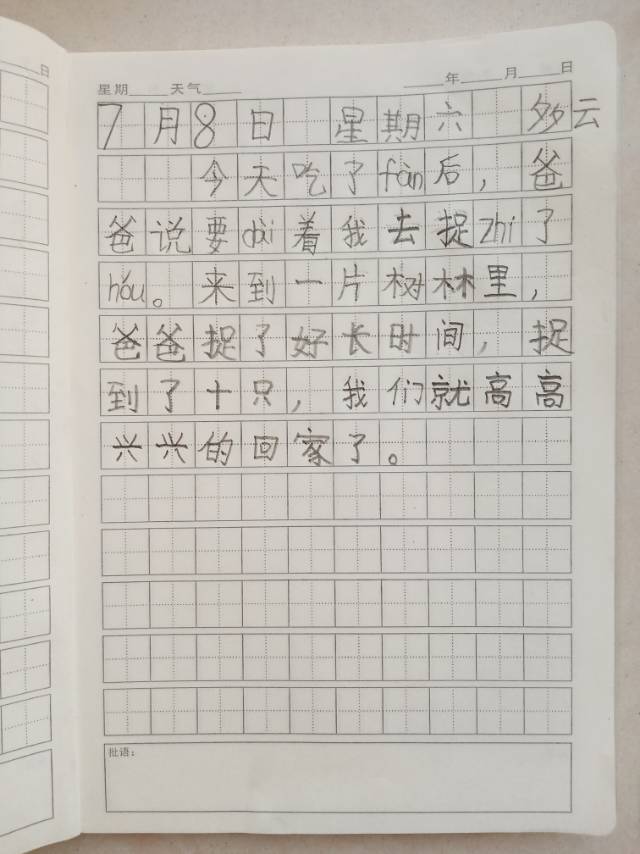 日
星期 天气 年 月 日
7月8日 星期六 多云
今天吃了fàn后，爸
爸说要dài着我去捉zhī了
hóu。来到一片树林里，
爸爸捉了好长时间，捉
到了十只，我们就高高
兴兴的回家了。
批语：